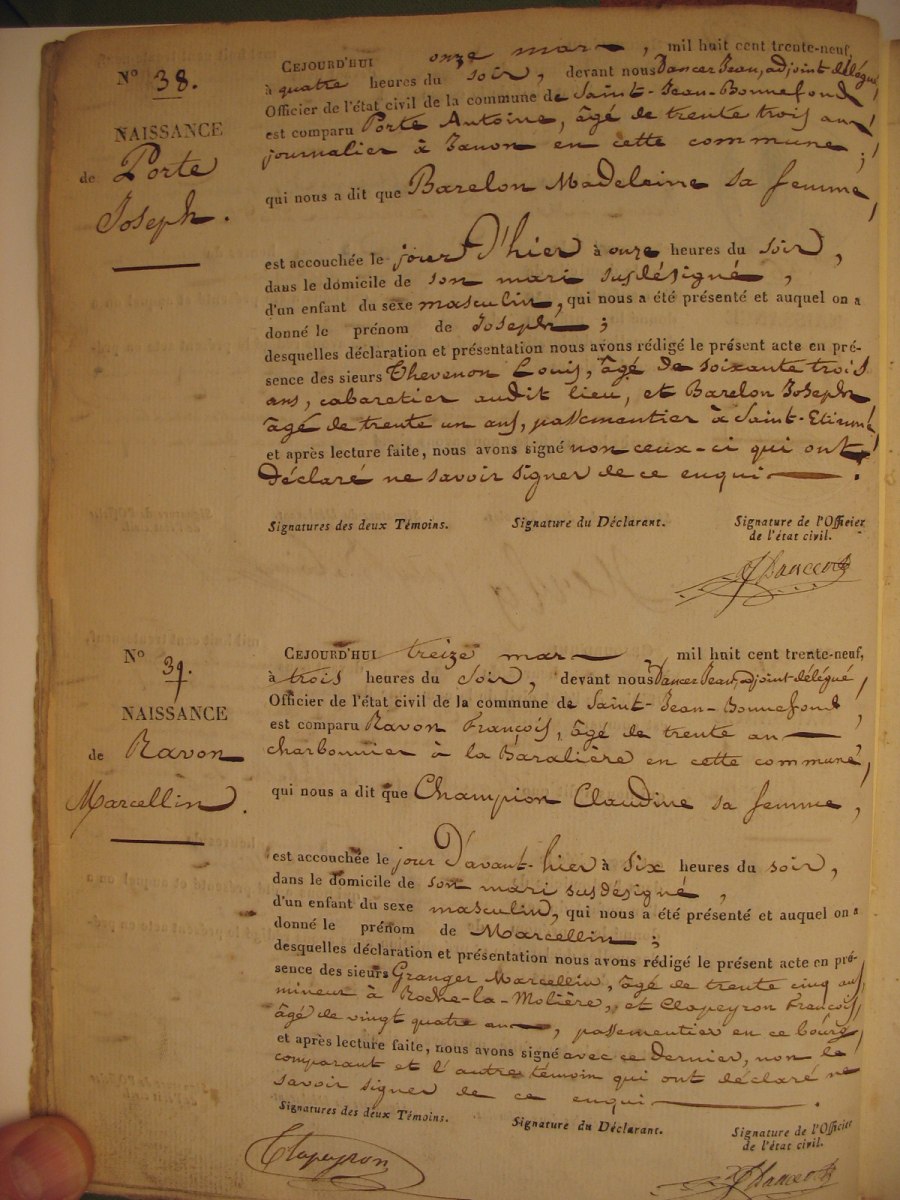 N° 38.
NAISSANCE
de Porte
Joseph.
CEJOURD'HUI onze mars, mil huit cent trente-neuf,
à quatre heures du soir, devant nous Dancer Jean, adjoint délégué,
Officier de l'état civil de la commune de Saint-Jean-Bonnefond,
est comparu Porte Antoine, âgé de trente trois ans,
journalier à Janon en cette commune;
qui nous a dit que Barelon Madeleine sa femme,
est accouchée le jour d'hier à onze heures du soir,
dans le domicile de son mari susdésigné,
d'un enfant du sexe masculin, qui nous a été présenté et auquel on a
donné le prénom de Joseph;
desquelles déclaration et présentation nous avons rédigé le présent acte en pré-
sence des sieurs Thevenon Louis, âgé de soixante trois
ans, cabaretier audit lieu, et Barelon Joseph
âgé de trente un ans, passementier à Saint-Etienne,
et après lecture faite, nous avons signé non ceux-ci qui ont
déclaré ne savoir signer de ce enqui.
Signatures des deux Témoins. Signature du Déclarant. Signature de l'Officier
de l'état civil.
N° 39.
NAISSANCE
de Ravon
Marcellin.
CEJOURD'HUI treize mars, mil huit cent trente-neuf,
à trois heures du soir, devant nous Dancer Jean, adjoint délégué,
Officier de l'état civil de la commune de Saint-Jean-Bonnefond,
est comparu Ravon François, âgé de trente ans
charbonnier à la Baralière en cette commune,
qui nous a dit que Champion Claudine sa femme,
est accouchée le jour d'avant-hier à six heures du soir,
dans le domicile de son mari susdésigné,
d'un enfant du sexe masculin, qui nous a été présenté et auquel on a
donné le prénom de Marcellin;
desquelles déclaration et présentation nous avons rédigé le présent acte en pré-
sence des sieurs Granger Marcellin, âgé de trente cinq ans,
mineur à Roche-la-Molière, et Clapeyron François,
âgé de vingt quatre ans, passementier en ce bourg,
et après lecture faite, nous avons signé avec ce dernier, non le
comparant et l'autre témoin qui ont déclaré ne
savoir signer de ce enqui.
Signatures des deux Témoins. Signature du Déclarant. Signature de l'Officier
de l'état civil.
Clapeyron